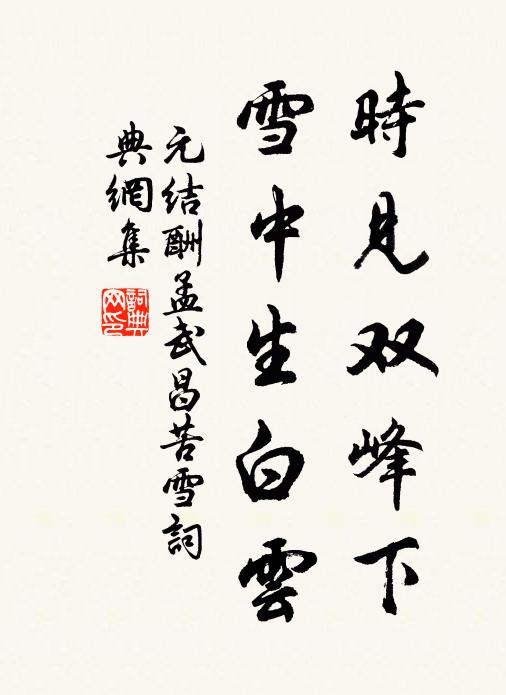 時見双峰下
雪中生白雲
元结酬孟武昌苦雪詞
典網集
詞典网印